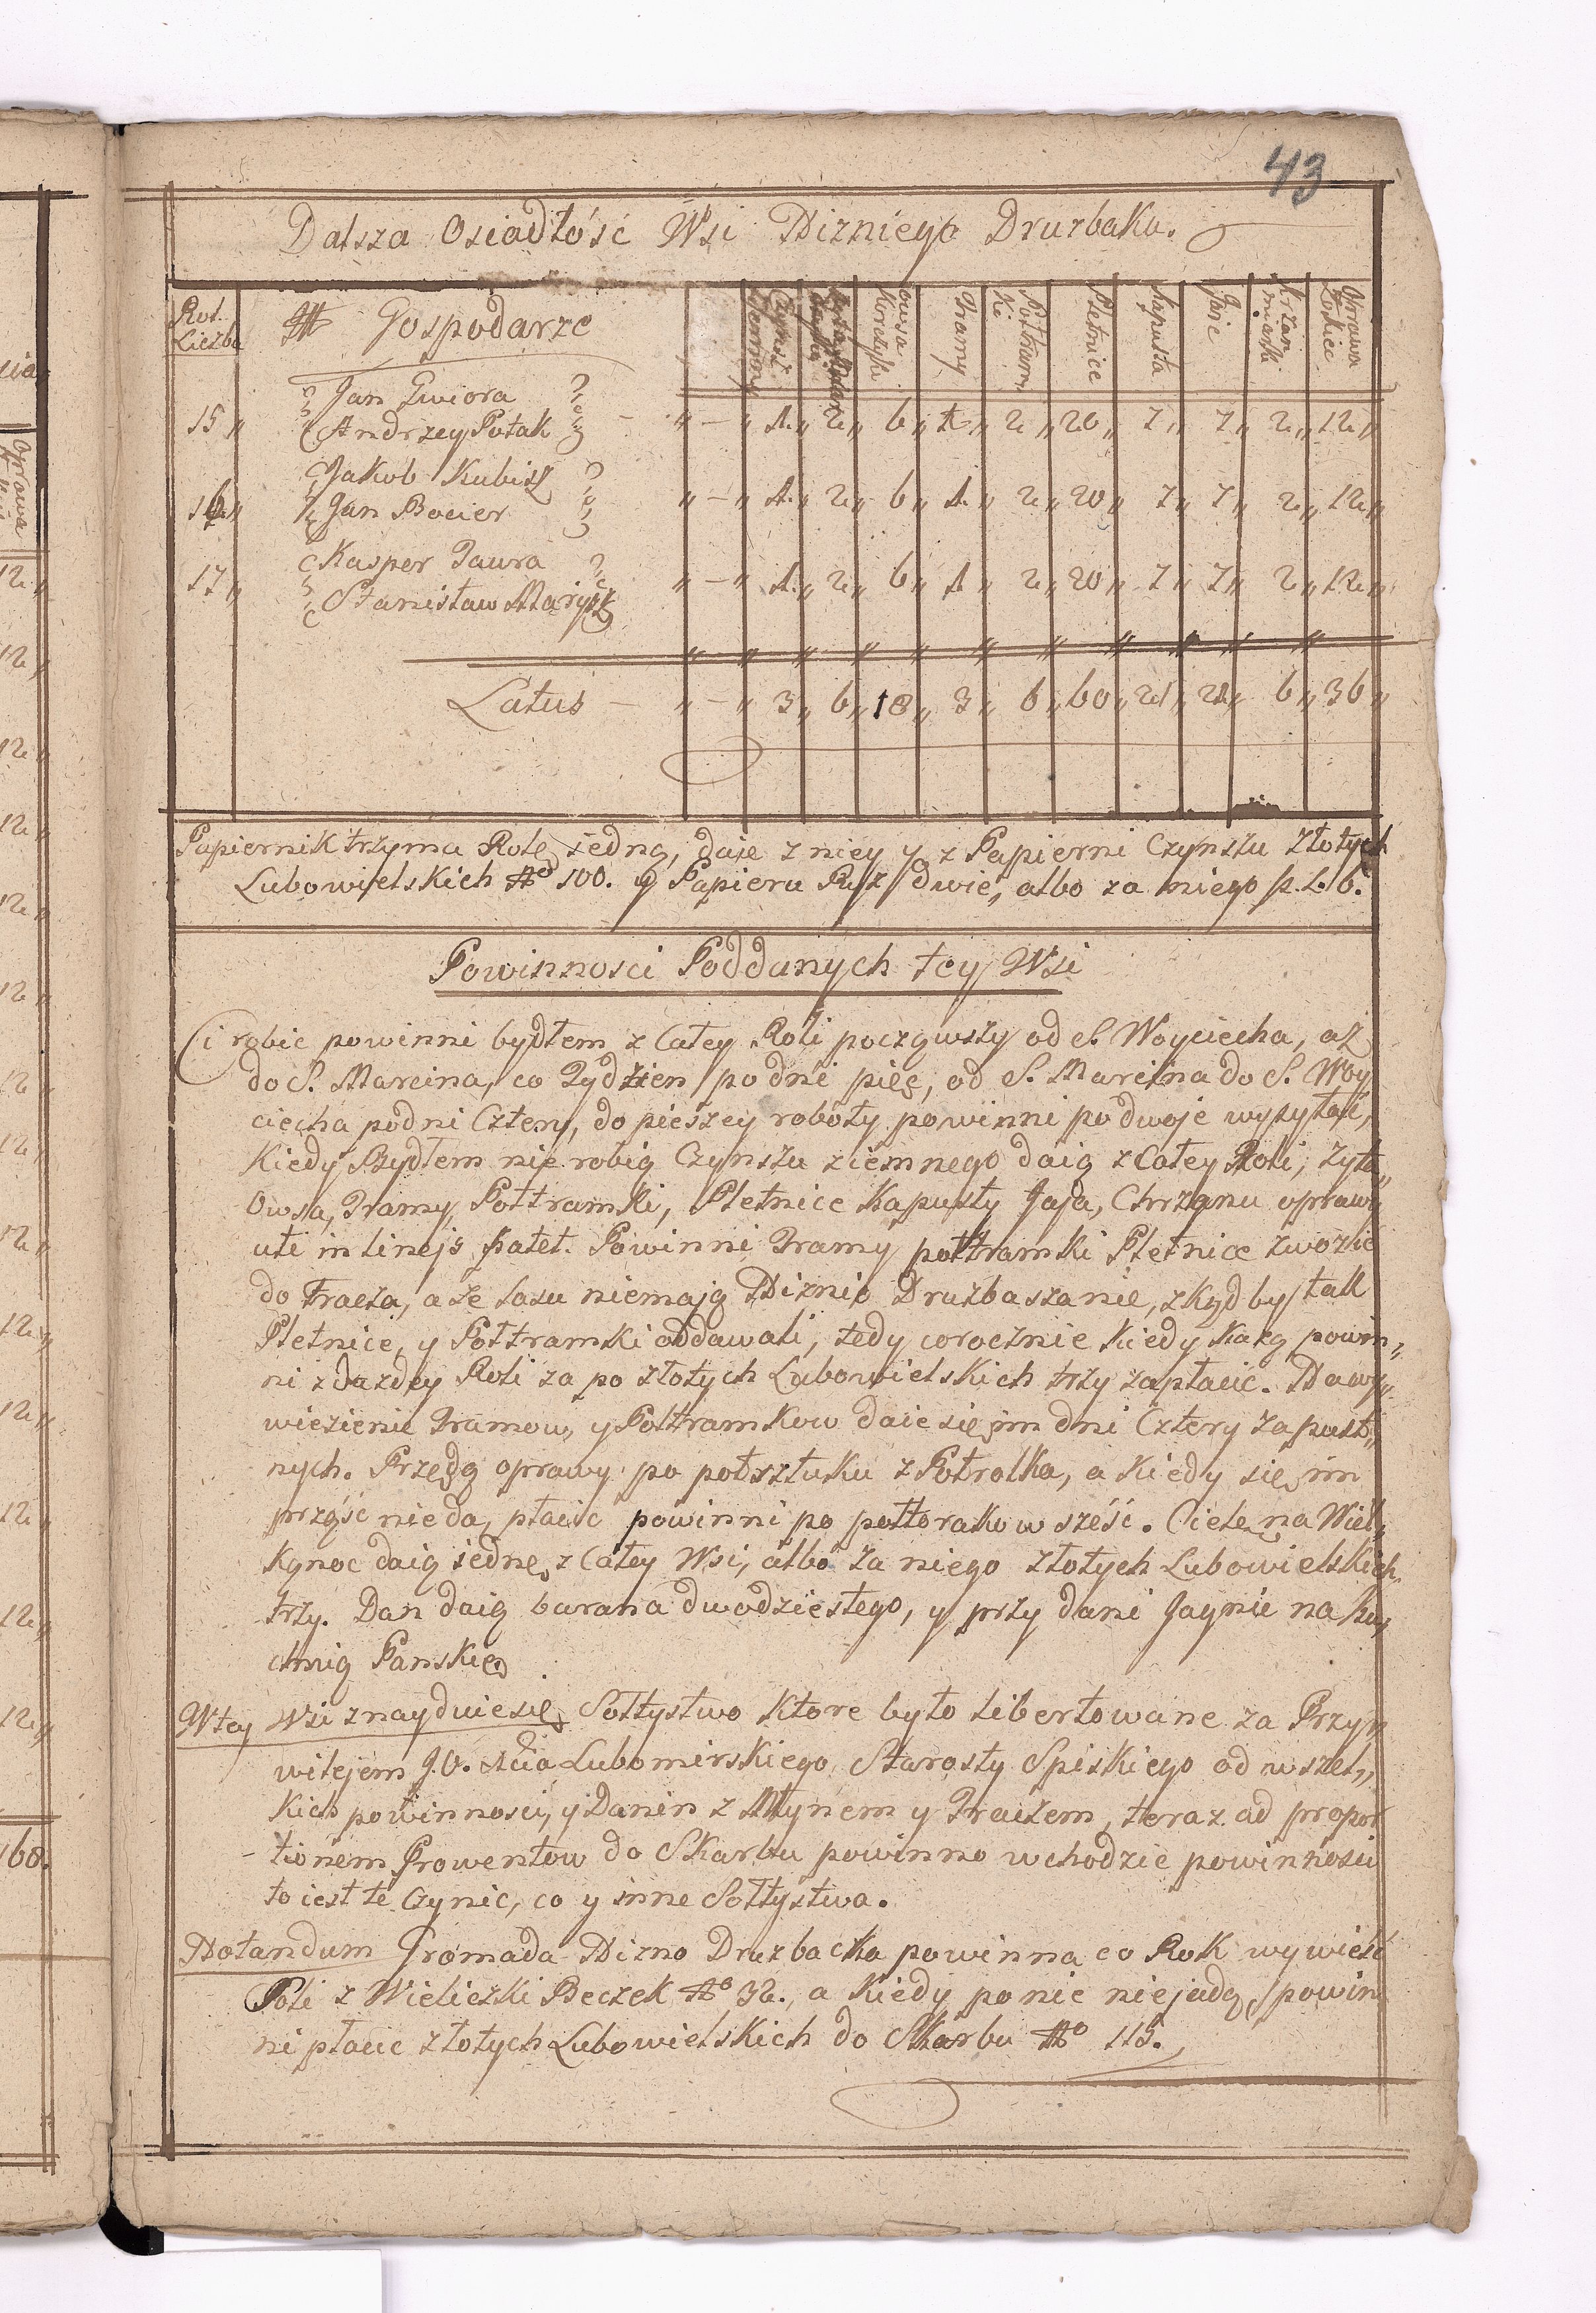 43
Dalsza Osiadłość Wsi Nizniego Druzbaku.
Rol. Liczba Gospodarze Czynsz Ziemny Owsa Korczyki Tramy Półtramki Pletnice Kapusta Jaje krzan miarki Oprawa Łokiec
Jan Gwiora
15 Andrzey Polak " - " 1. " 2 " 6 " 1 " 2 " 20 " 7 " 7 " 2 " 12 "
Jakob Kubisz
16 Jan Bocier " - " 1. " 2 " 6 " 1. " 2 " 20 " 7 " 7 " 2 " 12 "
Kasper Jaura
17 Stanisław " - " 1. " 2 " 6 " 1 " 2 " 20 " 7 " 7 " 2 " 12 "
Latus - " - " 3 " 6 " 18 " 3 " 6 " 60 " 21 " 21 " 6 " 36 "
Papiernik trzyma Rolę jedną, daje z niey y z Papierni Czynszu Złotych
Lubowielskich No 100. y Papieru Ryz dwie, albo za niego p. L. 6.
Powinnosci Poddanych tey Wsi
Ci robic powinni bydłem z Całey Roli począwszy od S. Woyciecha, aż
do S. Marcina, co Tydzien po dni pięć, od S. Marcina do S. Woy
ciecha po dni Cztery, do pieszey roboty powinni po dwoje wysyłać,
Kiedy Bydłem nie robią Czynszu ziemnego daią z Całey Roli, Żyta,,
Owsa, Tramy, Półtramki, Pletnice Kapusty Jaja, Chrzanu oprawy
uti in lineis patet. Powinni Tramy półtramki Pletnice zwozić
do Tracza, a że lasu niemają Nizni Druzbaszanie, zkąd by tak
Pletnice, y Półtramki oddawali, tedy corocznie kiedy każą powin,,
ni z każdey Roli za po złotych Lubowielskich trzy zapłacic. Na wy,,
wiezienie Tramow, y Półtramkow daie się im dni Cztery zapust,,
nych. Przędą oprawy po półsztuku z Półrolka, a kiedy się im
prząść nie da, płacić powinni po półtorakow sześć. Cielę na Wiel,,
kąnoc daią jednę z Całey Wsi, albo za niego złotych Lubowielskich
trzy. Dan daią barana dwudziestego, y przy dani Jagnie na ku,,
chnią Panskię
W tey Wsi znayduie się Sołtystwo Ktore było libertowane za Przy,,
wilejem J.O. Xcia Lubomirskiego Starosty Spiskiego od wszel,,
kich powinnosci, y Danin z Młynem y Traczem, teraz ad propor
- tionem Prowentow do Skarbu powinno wchodzic powinnosci
to iest te Czynic, co y inne Sołtystwa.
Notandum Gromada Nizno Druzbacka powinna co Rok wywieść
Soli z Wieliczki Beczek No 32., a kiedy po nie niejadą, powin
ni płacic złotych Lubowielskich do Skarbu No 115.